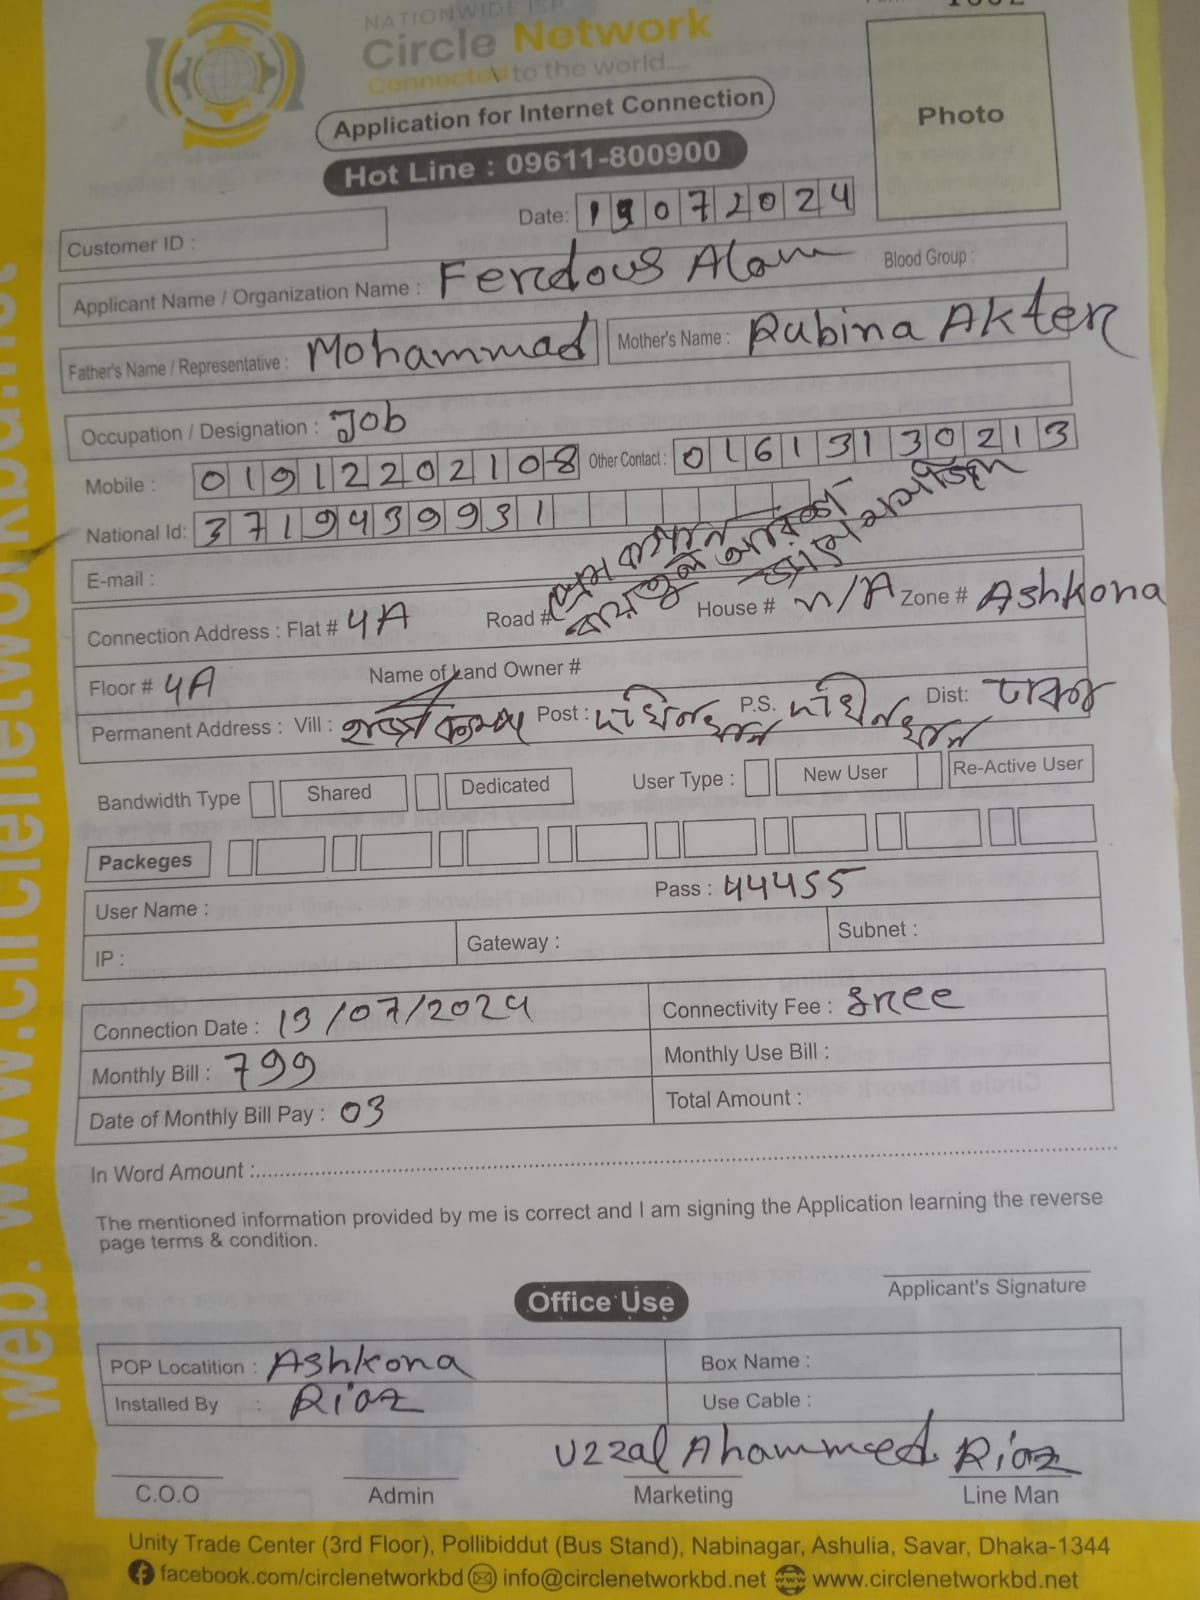 NATIONWIDE ISP
Circle Network
Connected to the world.....
Application for Internet Connection
Hot Line : 09611-800900
Photo
Date: 19072024
Customer ID :
Applicant Name / Organization Name : Ferdous Alam Blood Group :
Father's Name / Representative : Mohammad Mother's Name : Rubina Akter
Occupation / Designation : Job
Mobile : 01912202108 Other Contact : 01613130213
National Id: 3719439931
E-mail :
Connection Address : Flat # 4A Road # House # n/A Zone # Ashkona
Floor # 4A Name of Land Owner #
Permanent Address : Vill : Post : P.S. Dist: ঢাকা
Bandwidth Type Shared Dedicated User Type : New User Re-Active User
Packeges
User Name : Pass : 44455
IP : Gateway : Subnet :
Connection Date : 13/07/2024 Connectivity Fee : free
Monthly Bill : 799 Monthly Use Bill :
Date of Monthly Bill Pay : 03 Total Amount :
In Word Amount :
The mentioned information provided by me is correct and I am signing the Application learning the reverse
page terms & condition.
Applicant's Signature
Office Use
POP Locatition : Ashkona Box Name :
Installed By : Riaz Use Cable :
Uzzal Ahammed Riaz
C.O.O Admin Marketing Line Man
Unity Trade Center (3rd Floor), Pollibiddut (Bus Stand), Nabinagar, Ashulia, Savar, Dhaka-1344
facebook.com/circlenetworkbd info@circlenetworkbd.net www.circlenetworkbd.net
web: www.circlenetworkbd.net